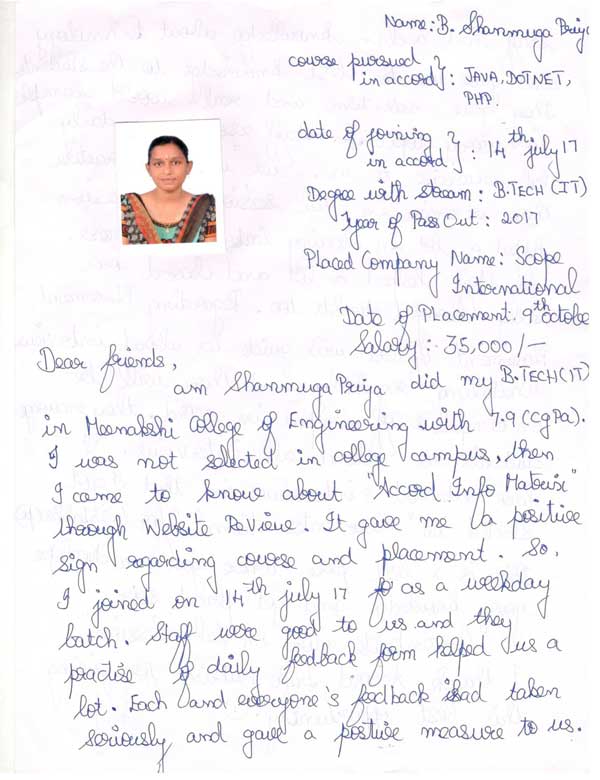 Name: B. Shanmuga Priya
course pursued
in accord } : JAVA, DOTNET,
PHP.
date of joining
in accord. } : 14th july 17
Degree with stream : B.TECH (IT)
Year of Pass Out : 2017
Placed Company Name: Scope
International
Date of Placement: 9th octobe
Salary : 35,000 /-
Dear friends,
am Shanmuga Priya did my B.TECH (IT)
in Meenakshi College of Engineering with 7.9 (CgPa).
I was not selected in college campus, then
I came to know about "Accord Info Matrix"
through Website ReView. It gave me a positive
sign regarding course and placement. So,
I joined on 14th july 17 as a weekday
batch. Staff were good to us and they
practise of daily feedback form helped us a
lot. Each and everyone's feedback had taken
seriously and gave a positive measure to us.